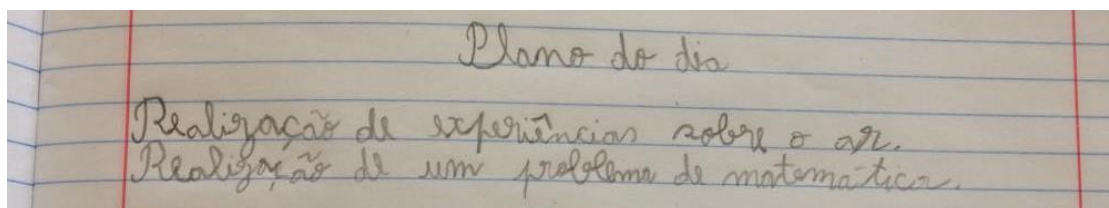 Plano do dia
Realização de experiências sobre o ar.
Realização de um problema de matemática.